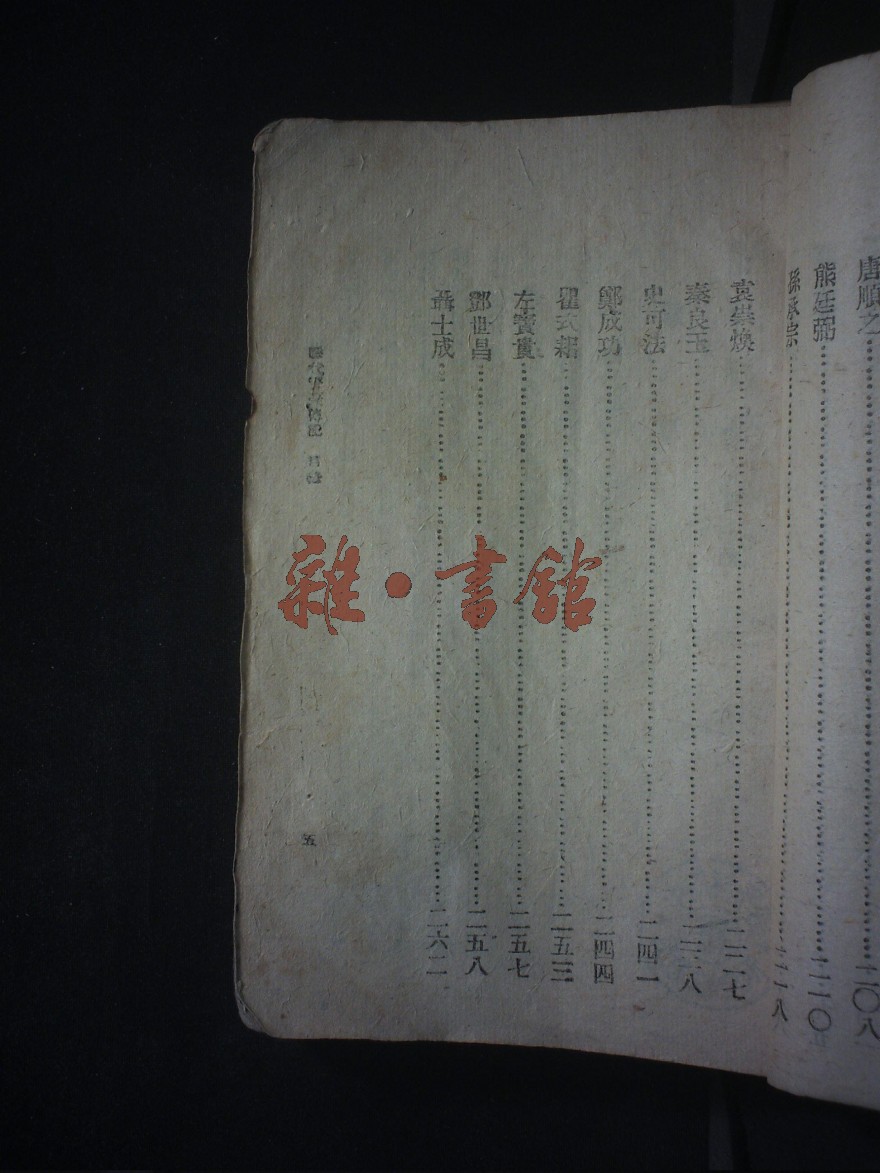 唐順之 二〇八
熊廷弼 二一〇
孫承宗 二一八
袁崇煥 二二七
秦良玉 二三八
史可法 二四一
鄭成功 二四四
瞿式耜 二五三
左寶貴 二五七
鄧世昌 二五八
聶士成 二六二
目錄
五
雜·書館